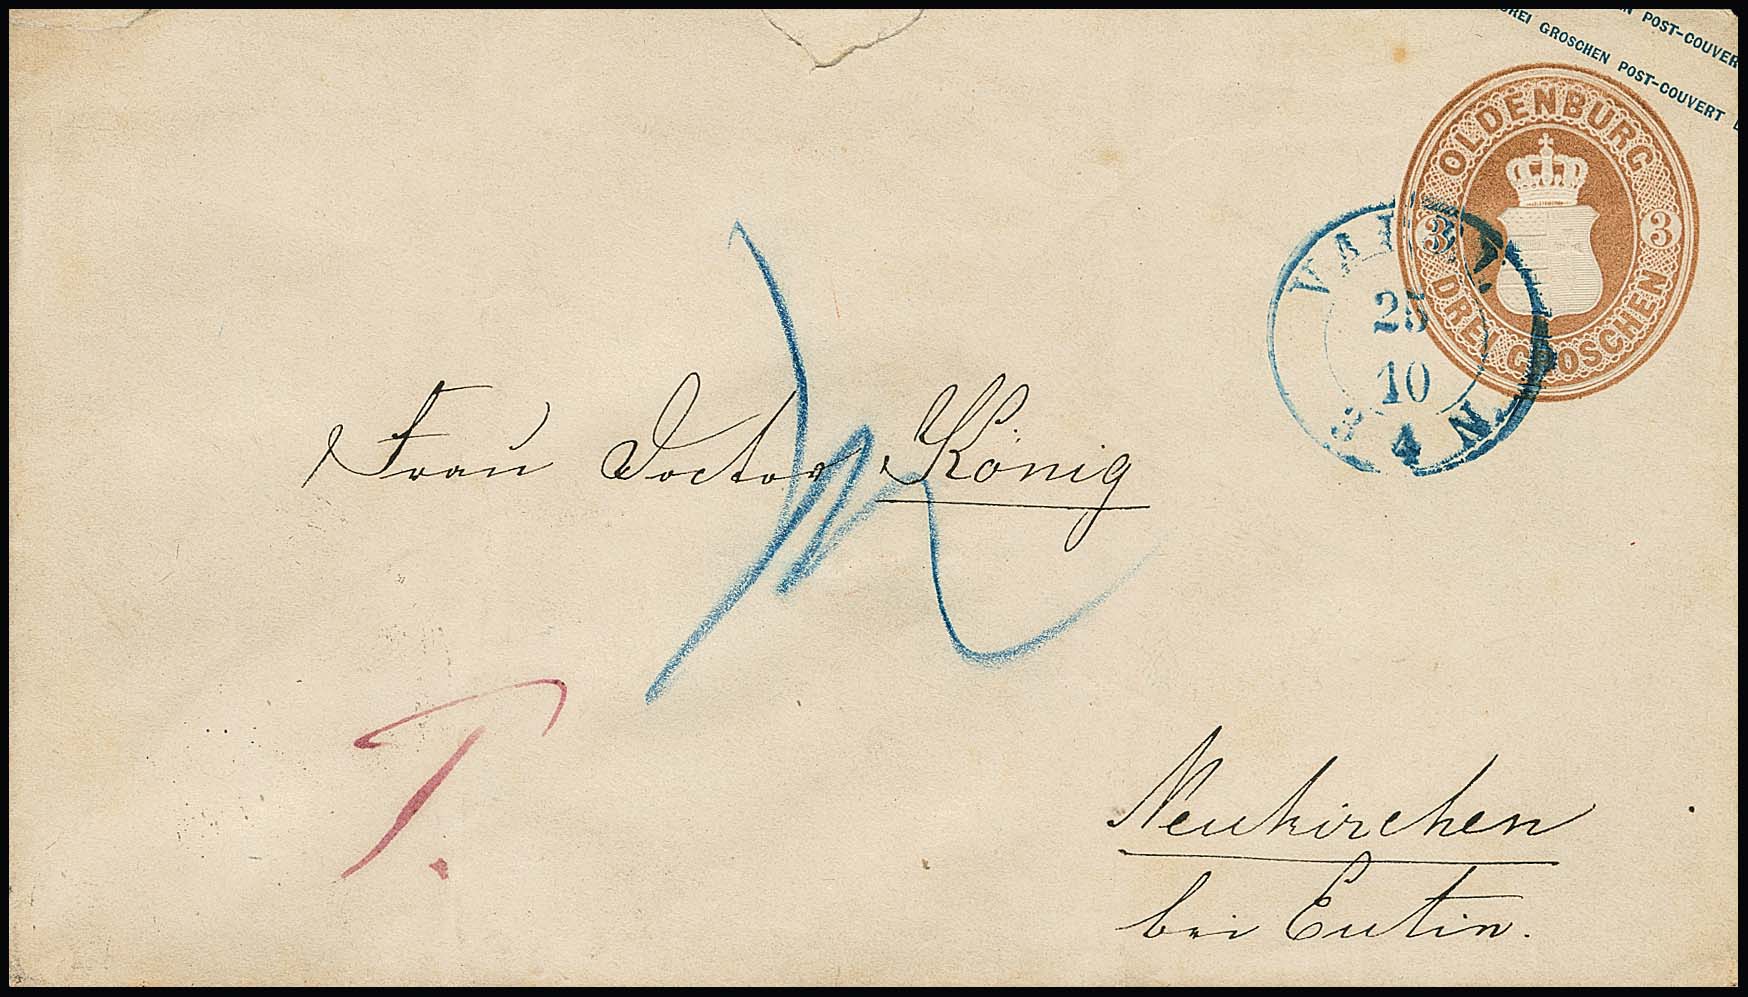 N POST-COUVER
DREI GROSCHEN POST-COUVERT
OLDENBURG
3 3
DREI GROSCHEN
VAREL.
25
10
3-4 N.
Frau Doctor König
T.
Neukirchen
bei Eutin.